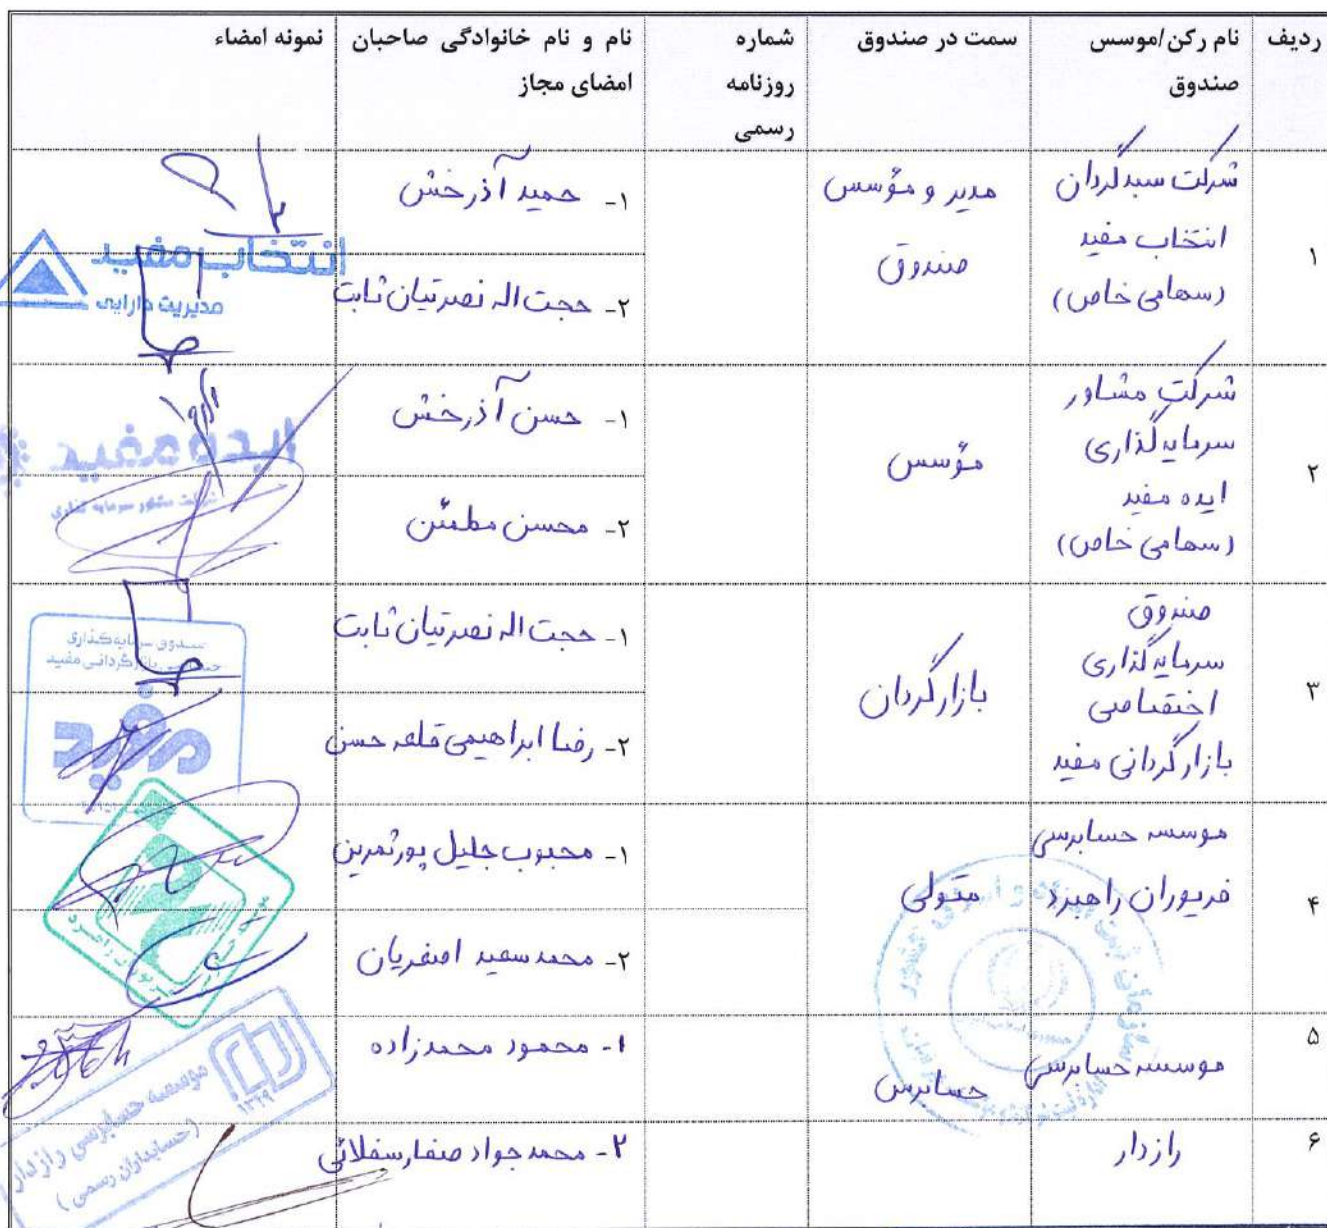 ردیف
نام رکن/موسس
صندوق
سمت در صندوق
شماره
روزنامه
رسمی
نام و نام خانوادگی صاحبان
امضای مجاز
نمونه امضاء
۱
شرکت سبدگردان
انتخاب مفید
(سهامی خاص)
مدیر و مؤسس
صندوق
۱- حمید آذرخش
۲- حجت اله نصرتیان ثابت
انتخاب مفید
مدیریت دارایی
۲
شرکت مشاور
سرمایه گذاری
ایده مفید
(سهامی خاص)
مؤسس
۱- حسن آذرخش
۲- محسن مطمئن
ایده مفید
شرکت مشاور سرمایه گذاری
۳
صندوق
سرمایه گذاری
اختصاصی
بازارگردانی مفید
بازارگردان
۱- حجت اله نصرتیان ثابت
۲- رضا ابراهیمی قلعه حسن
صندوق سرمایه‌گذاری
بازارگردانی مفید
مفید
۴
موسسه حسابرسی
فریوران راهبرد
متولی
۱- محبوب جلیل پور ثمرین
۲- محمد سعید اصغریان
۵
موسسه حسابرسی
حسابرس
۱- محمود محمدزاده
موسسه حسابرسی رازدار
(حسابداران رسمی)
۱۳۶۹
۶
رازدار
۲- محمد جواد صفار سفلائی